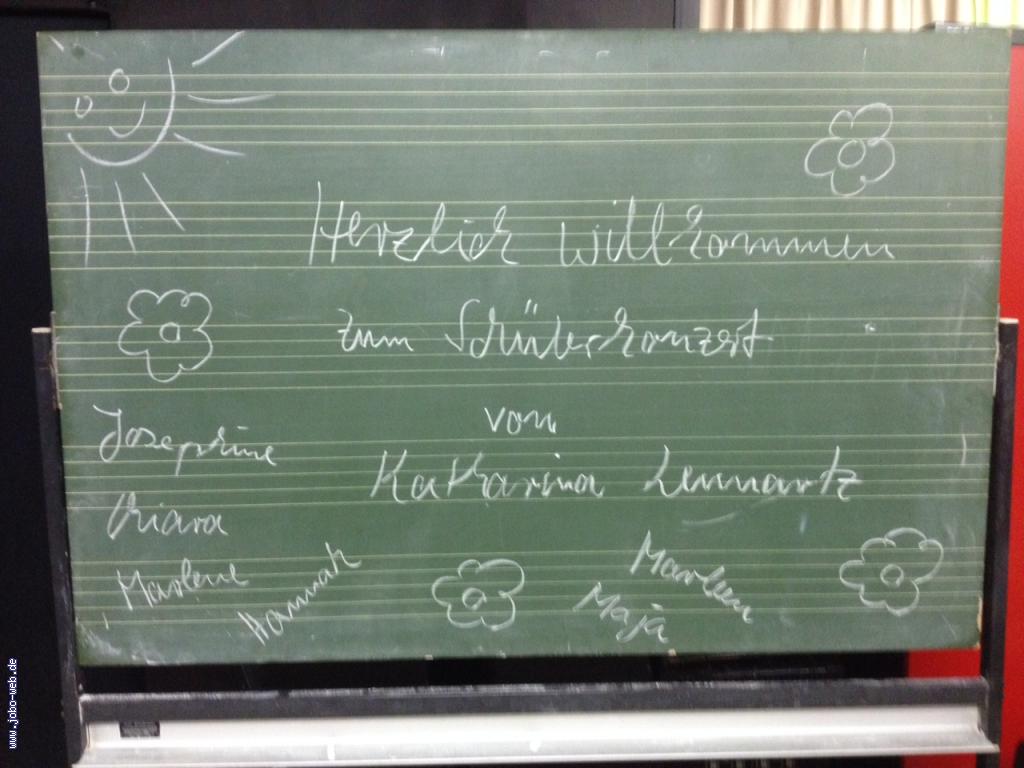 Herzlich willkommen
zum Schülerkonzert
von
Katharina Lennartz
Josephine
Chiara
Marlene
Hannah
Marleen
Maja
www.jobo-web.de